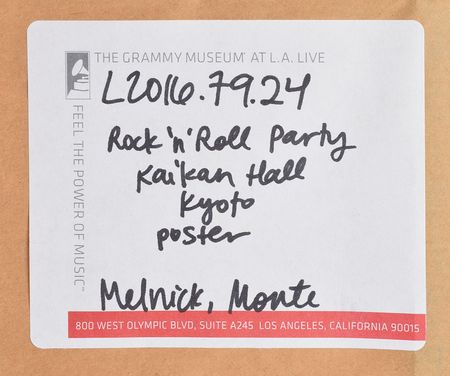 THE GRAMMY MUSEUM® AT L.A. LIVE
FEEL THE POWER OF MUSIC™
L2016.79.24
Rock 'n' Roll Party
Kaikan Hall
Kyoto
poster
Melnick, Monte
800 WEST OLYMPIC BLVD, SUITE A245 LOS ANGELES, CALIFORNIA 90015